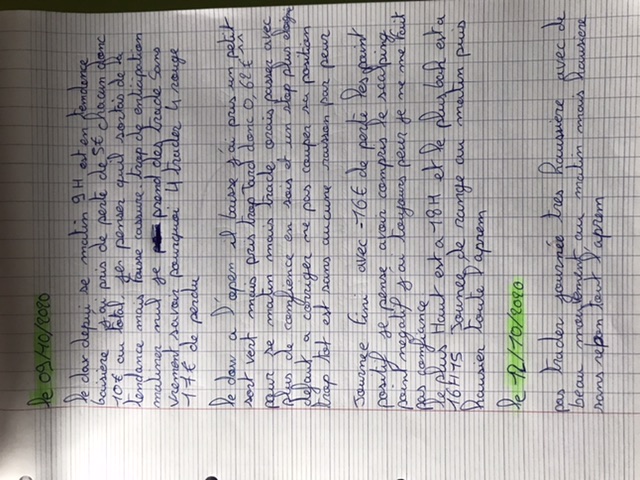 le 09/10/2020
le dax depuis se matin 9H est en tendence
baisière j'ai pris de perte de 5€ chacun donc
10€ au total. j'ai penser qu'il sortai de la
tendance mais fausse cassure. trop de enticipation
matiner nul je prend des trade sans
vrement savoir pourquoi 4 trader 4 rouge
-17€ de perdu
le dow a l'open il baisse j'ai pris un petit
sort vert mais pas trop tard donc 0,62€ ^^
pour se matin mais trade orais passer avec
plus de confience en sois et un stop plus
defaut a coriger ne pas couper sa position
trop tot est sans aucune raison par peur
Journee fini avec -16€ de perte les point
positif je pense avoir compris le scalping
point negatif j'ai toujours peur je ne me fait
pas confiance
le plus Haut est a 18H et le plus bah est a
16H15 Journee de range au matin puis
haussier toute l'aprem
le 12/10/2020
pas trader journée tres haussière avec de
beau mouvement au matin mais haussière
sans repon tout l'aprem